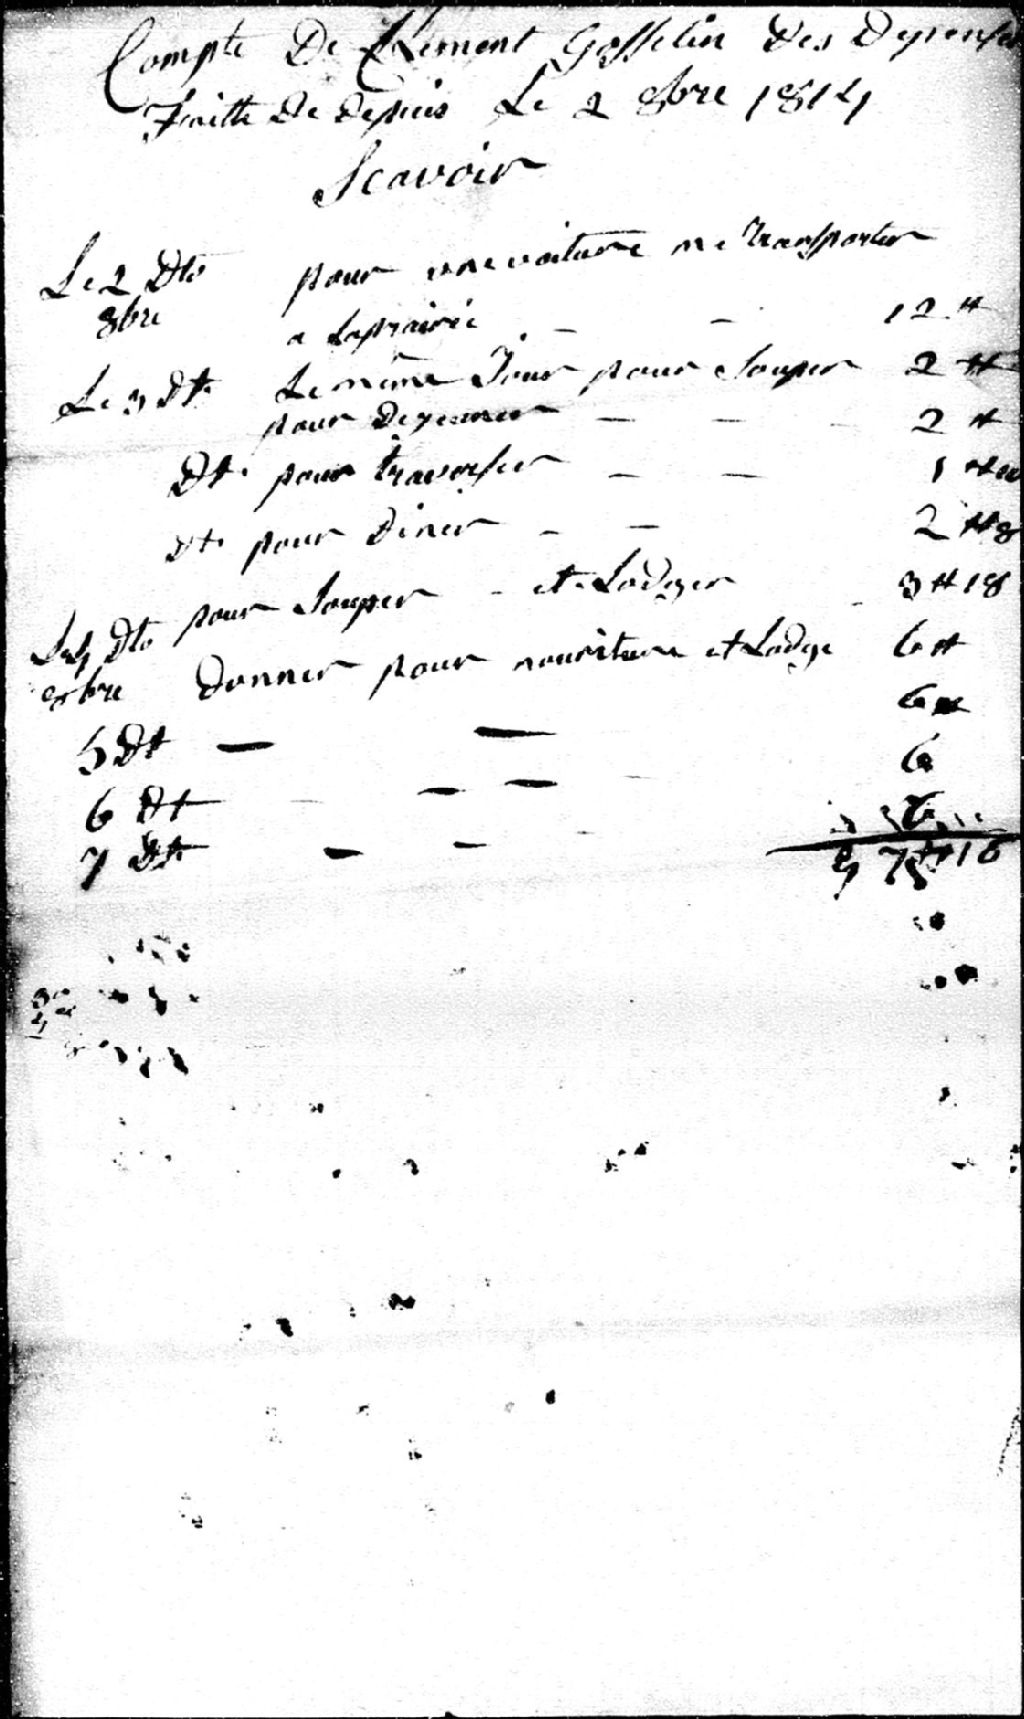 Compte De Clement Gosselin des Depenses
Faitte De depuis Le 2 8bre 1814
Scavoir
Le 2 Dto pour une voiture me transporter
8bre a Laprairie 12 ₶
Le même Jour pour Souper 2 ₶
Le 3 Dt pour Dejeuner 2 ₶
Dt pour traverser 1 ₶
Dt pour Diner 2 ₶ 8
pour Souper et Lodger 3 ₶ 18
Le 4 Dto
8bre Donner pour nouriture et Lodge 6 ₶
5 Dt 6 ₶
6 Dt 6
7 Dt 6